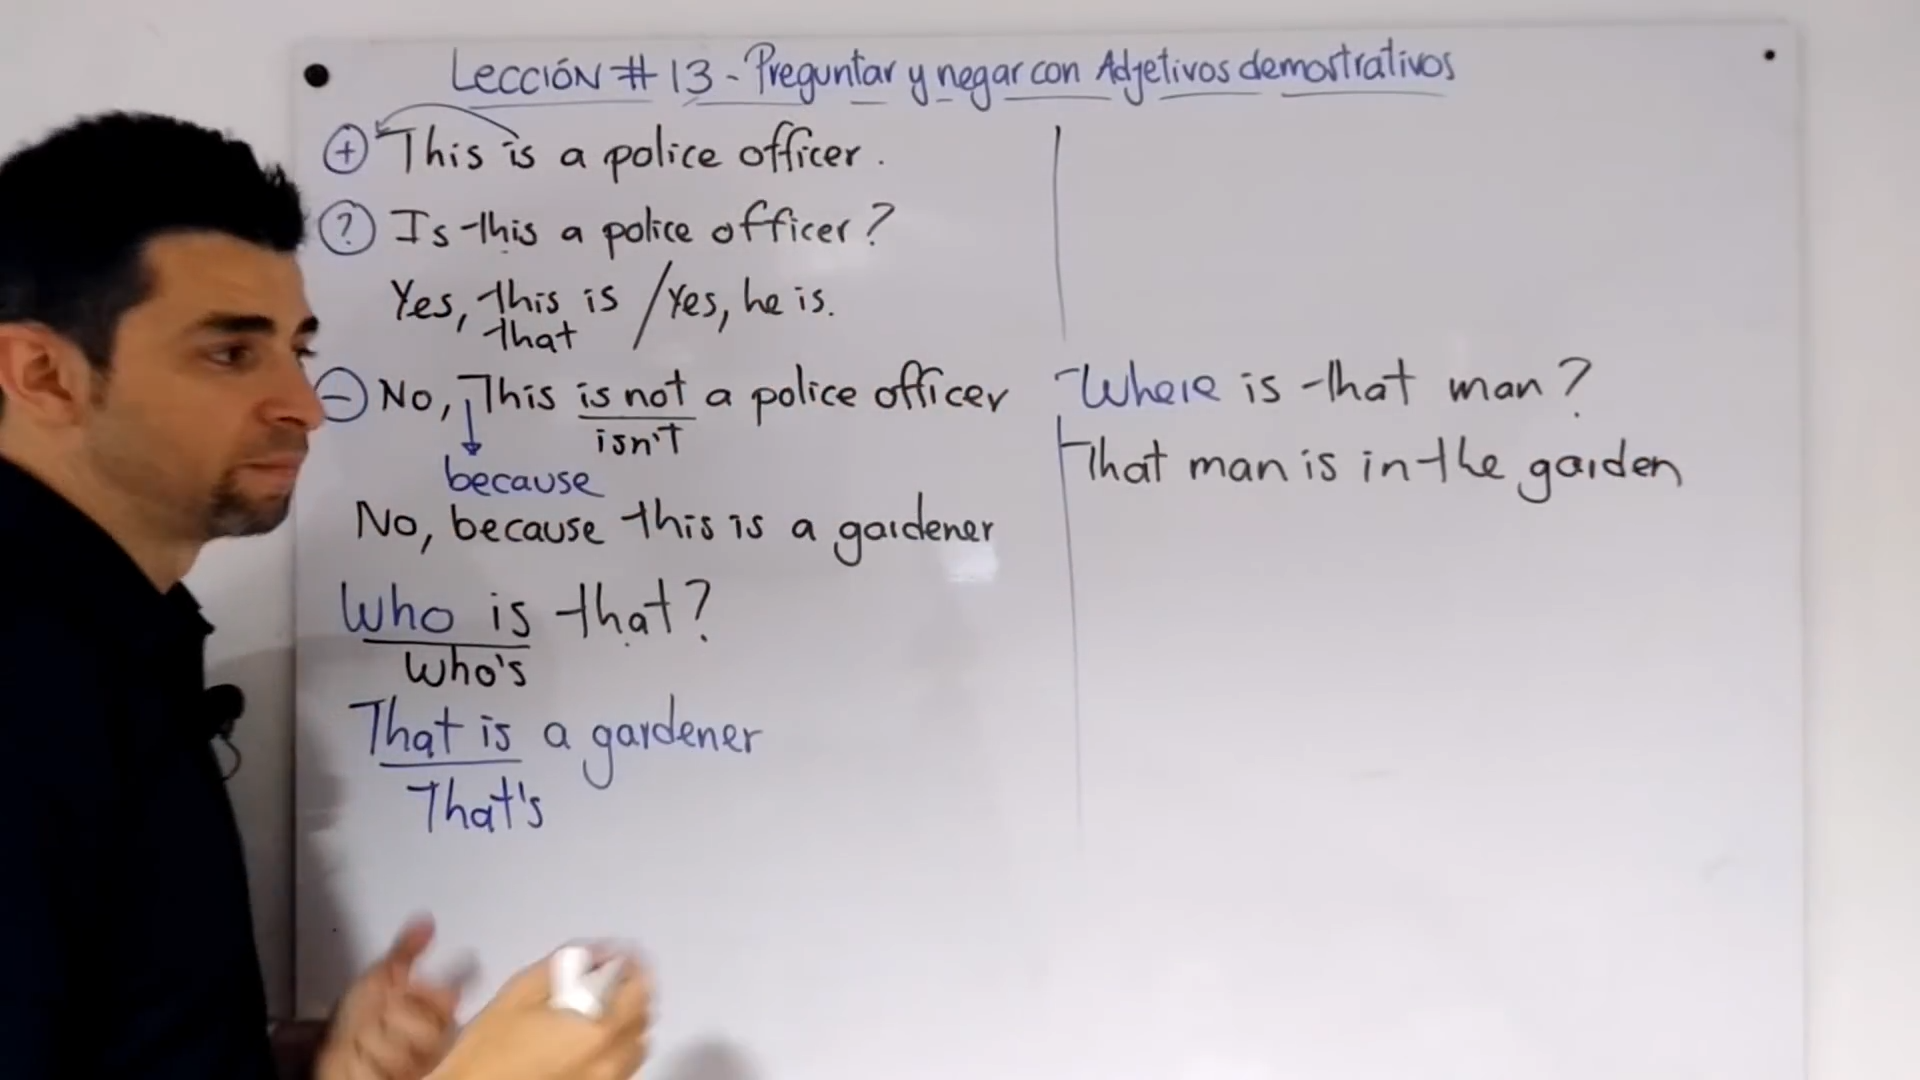 Lección # 13 - Preguntar y negar con Adjetivos demostrativos
+ This is a police officer.
? Is this a police officer?
Yes, this is / Yes, he is.
that
- No, This is not a police officer
isn't
because
No, because this is a gardener
Who is that?
Who's
That is a gardener
That's
Where is that man?
That man is in the garden